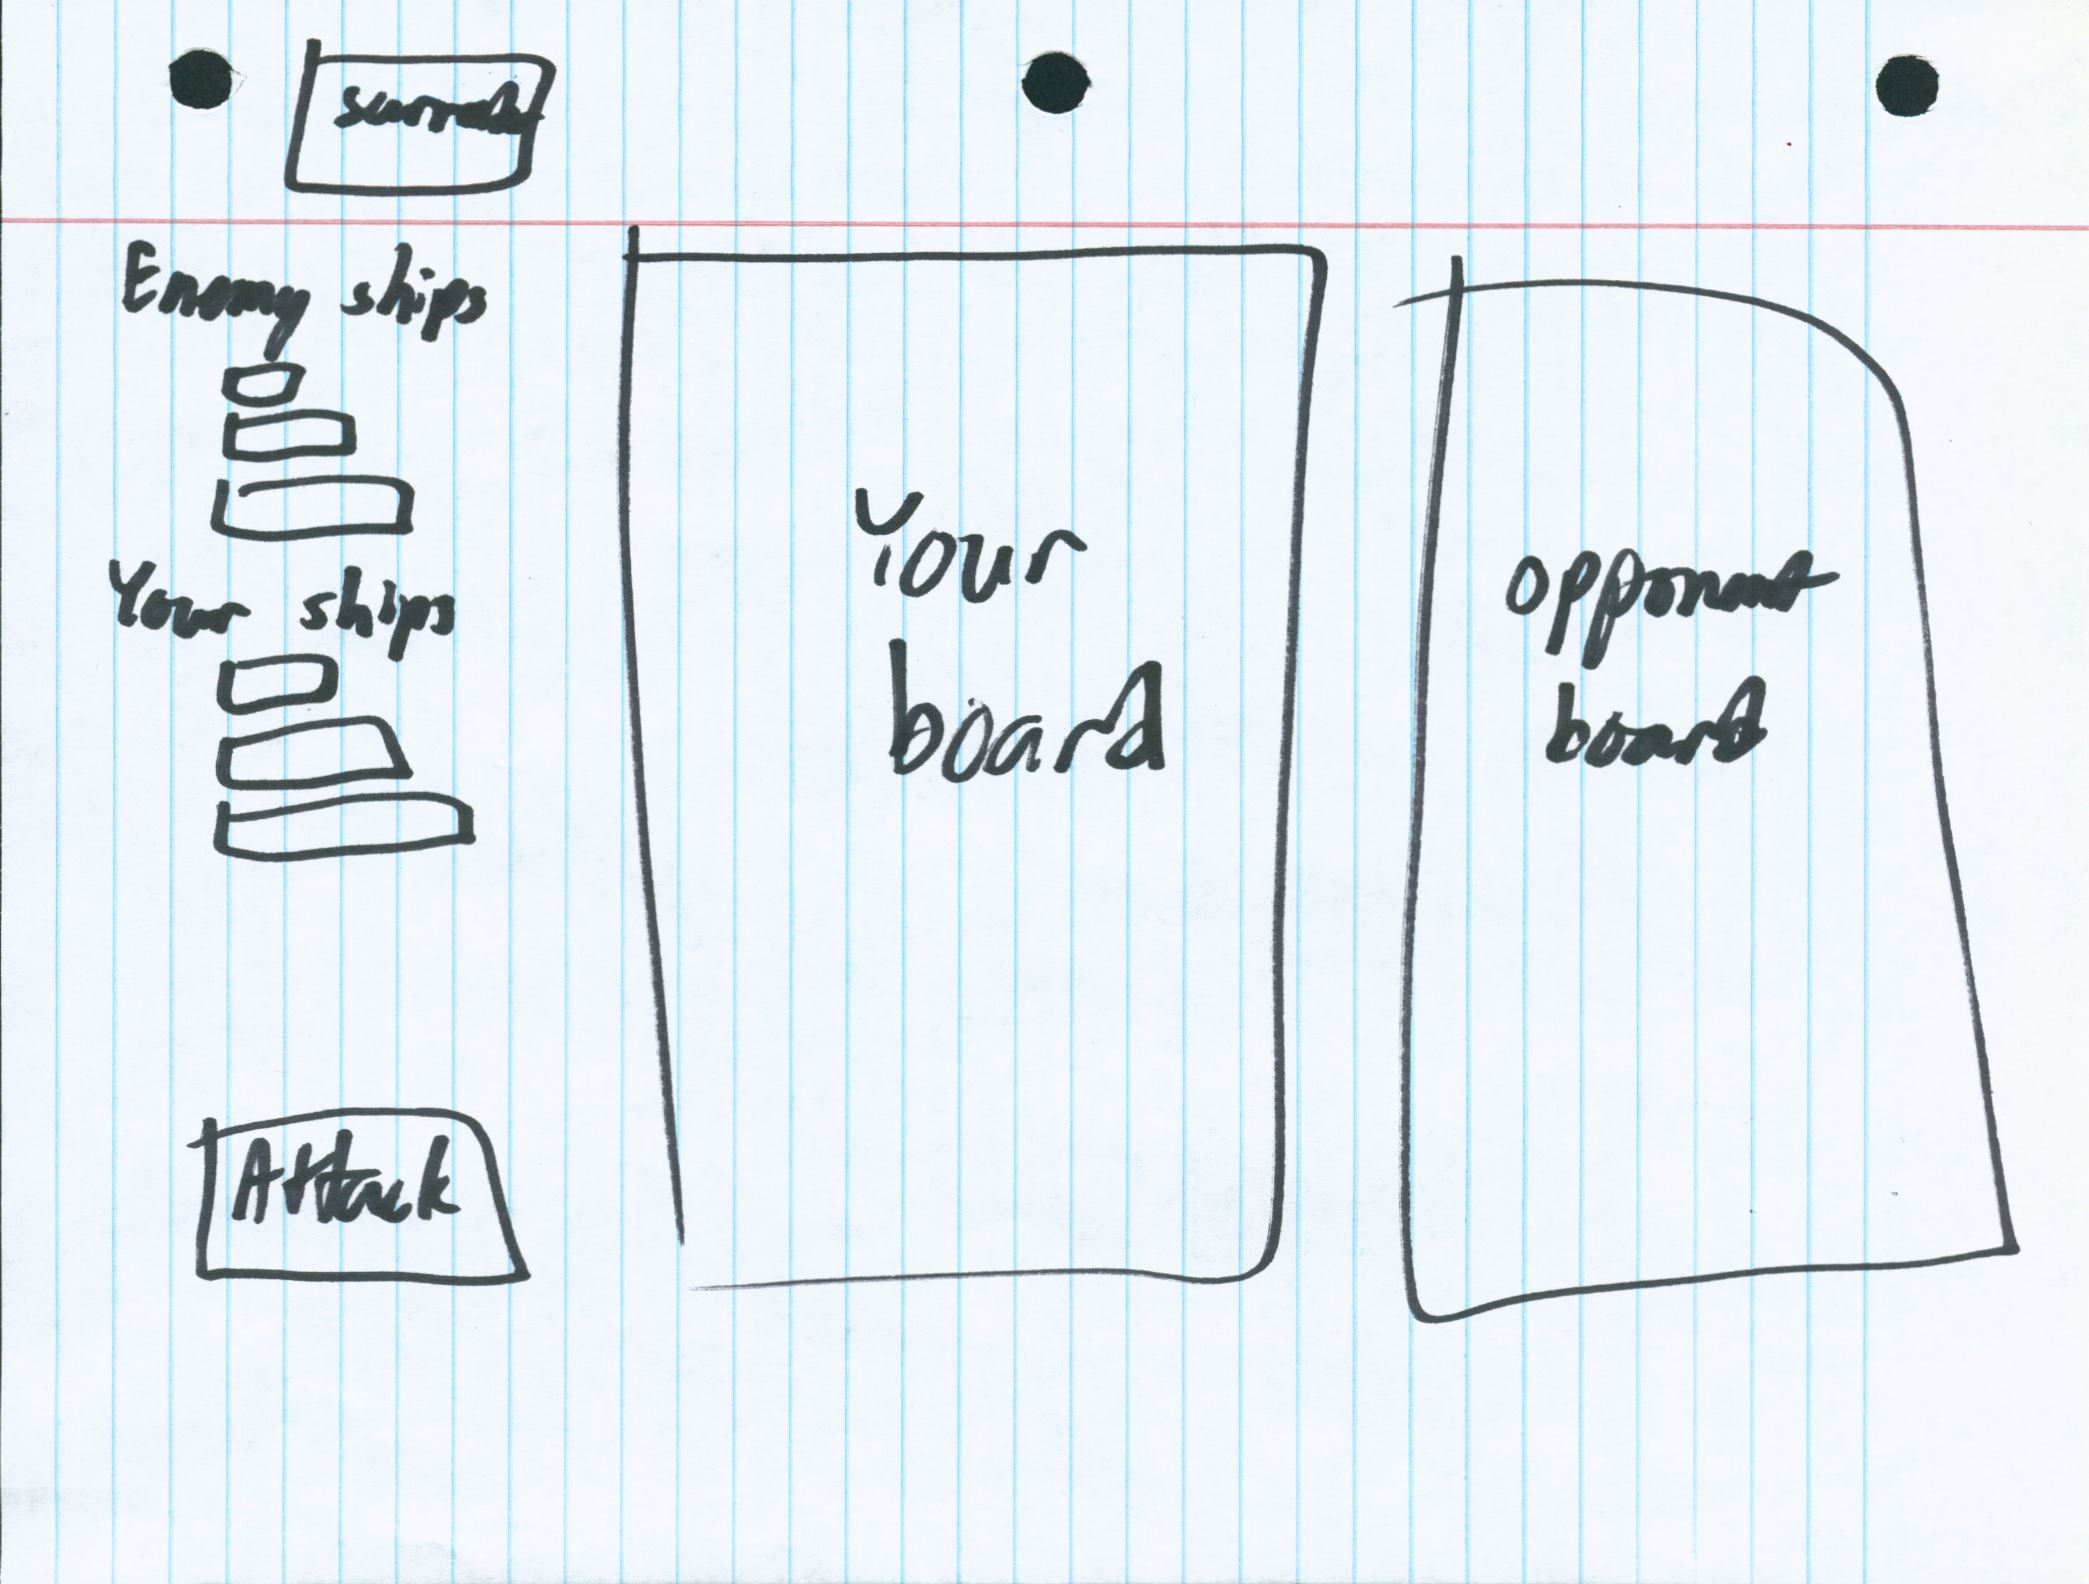 Enemy ships
Your ships
Attack
Your
board
opponent
board